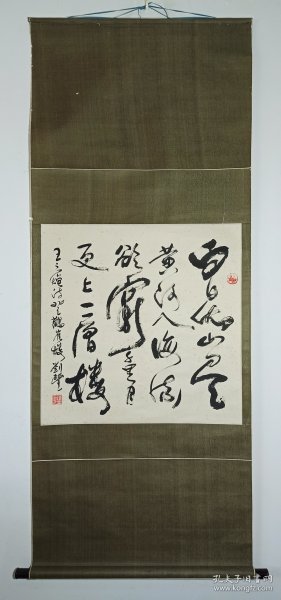 白日依山尽
黄河入海流
欲穷千里目
更上一层楼
王之涣诗登鹳雀楼 刘
孔夫子旧书网